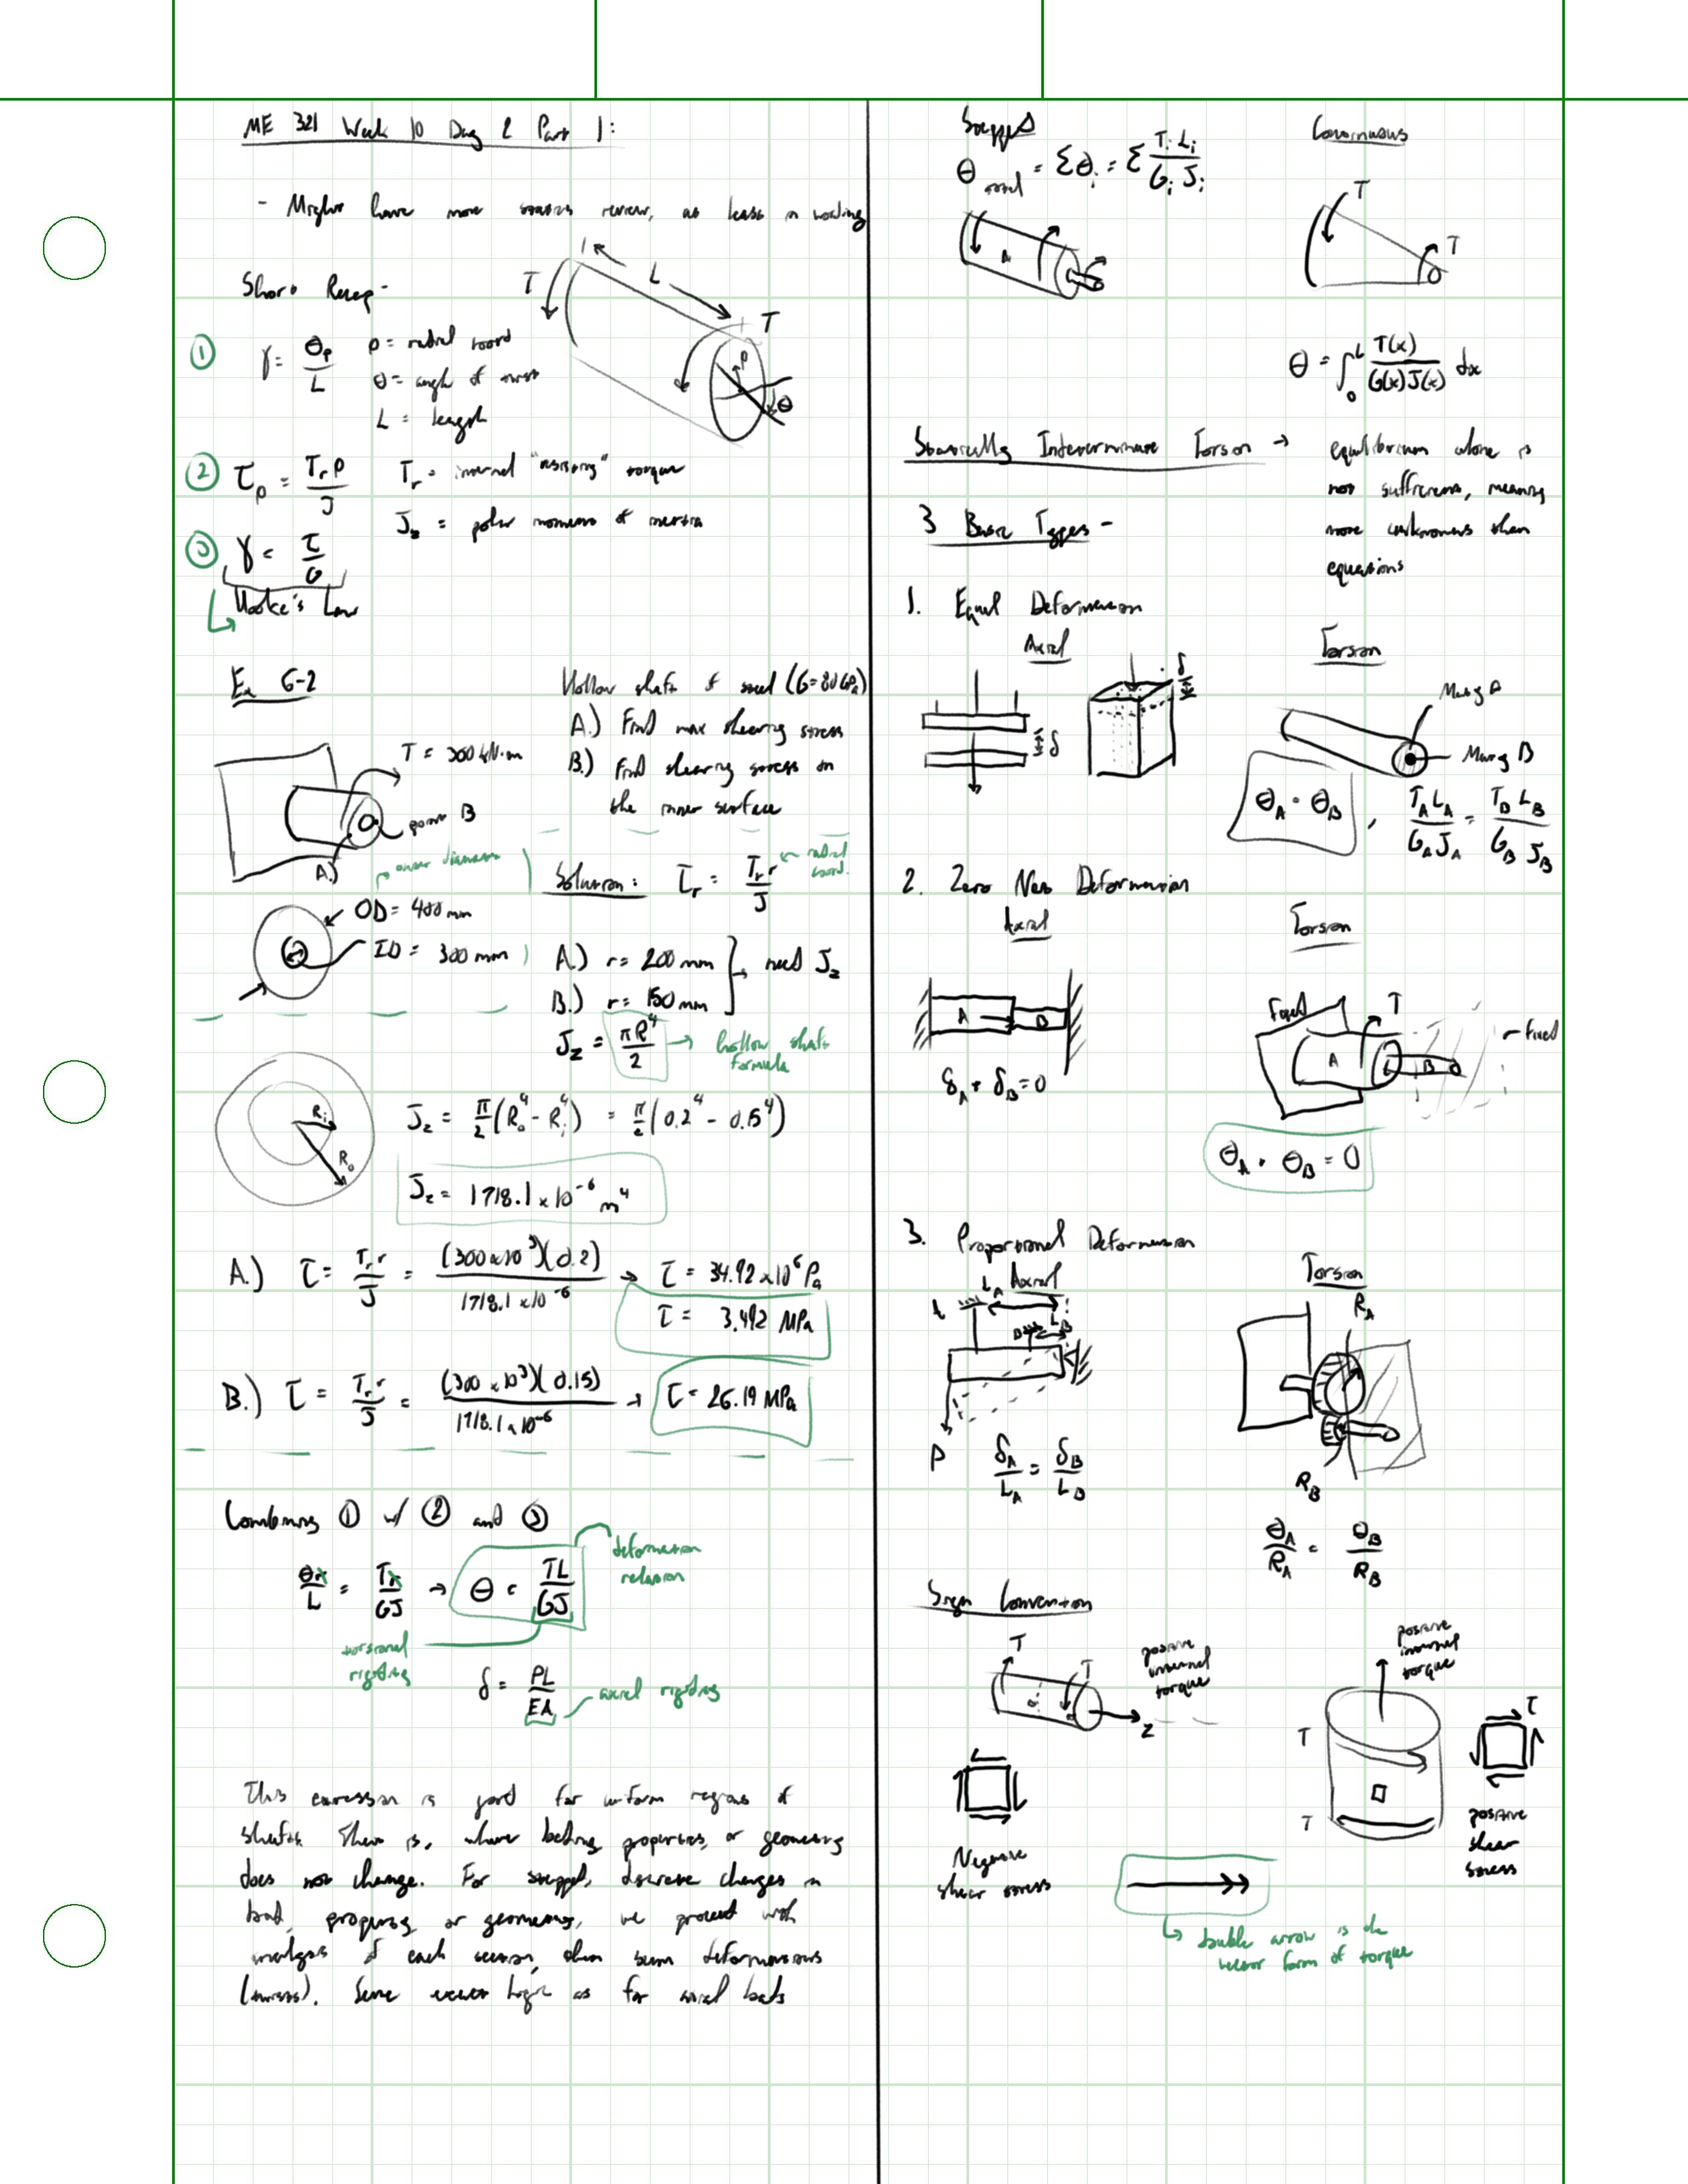 ME 321 Week 10 Day 2 Part 1:
- Might have more statics review, at least in wording
Short Recap -
T
L
T
ρ
θ
① γ = θρ/L
ρ = radial coord
θ = angle of twist
L = length
② τρ = Tr ρ/J
Tr = internal "resisting" torque
Jz = polar moment of inertia
③ γ = τ/G
Hooke's Law
Ex 6-2
Hollow shaft of steel (G=80 GPa)
A.) Find max shearing stress
B.) Find shearing stress on
the inner surface
T = 300 kN·m
point B
A.)
outer diameter
OD = 400 mm
ID = 300 mm
Solution: τr = Tr r/J
radial
coord.
A.) r = 200 mm
B.) r = 150 mm
need Jz
Jz = πR⁴/2
hollow shaft
formula
Ri
Ro
Jz = π/2 (Ro⁴ - Ri⁴) = π/2 (0.2⁴ - 0.15⁴)
Jz = 1718.1 x 10⁻⁶ m⁴
A.) τ = Tr r/J = (300x10³)(0.2)/1718.1 x10⁻⁶ → τ = 34.92 x10⁶ Pa
τ = 3.492 MPa
B.) τ = Tr r/J = (300 x10³)(0.15)/1718.1 x10⁻⁶ → τ = 26.19 MPa
Combining ① w/ ② and ③
θr/L = Tr/GJ → θ = TL/GJ
deformation
relation
torsional
rigidity
δ = PL/EA
axial rigidity
This expression is good for uniform regions of
shafts. That is, where loading, properties, or geometry
does not change. For stepped, discrete changes in
load, property or geometry, we proceed with
analysis of each section, then sum deformations
(twists). Same logic as for axial loads
Stepped
θ total = Σθi = Σ Ti Li/Gi Ji
A
Continuous
T
T
θ = ∫₀ᴸ T(x)/G(x)J(x) dx
Statically Indeterminate Torsion → equilibrium alone is
not sufficient, meaning
more unknowns than
equations
3 Basic Types -
1. Equal Deformation
Axial
δ
δ
Torsion
Mat'g A
Mat'g B
θA = θB , TA LA/GA JA = TB LB/GB JB
2. Zero Net Deformation
Axial
A
B
δA + δB = 0
Torsion
Fixed
T
A
B
Fixed
θA + θB = 0
3. Proportional Deformation
Axial
LA
A
B
LB
P
δA/LA = δB/LB
Torsion
RA
RB
θA/RA = θB/RB
Sign Convention
T
T
z
positive
internal
torque
Negative
shear stress
positive
internal
torque
T
T
τ
positive
shear
stress
double arrow is the
vector form of torque